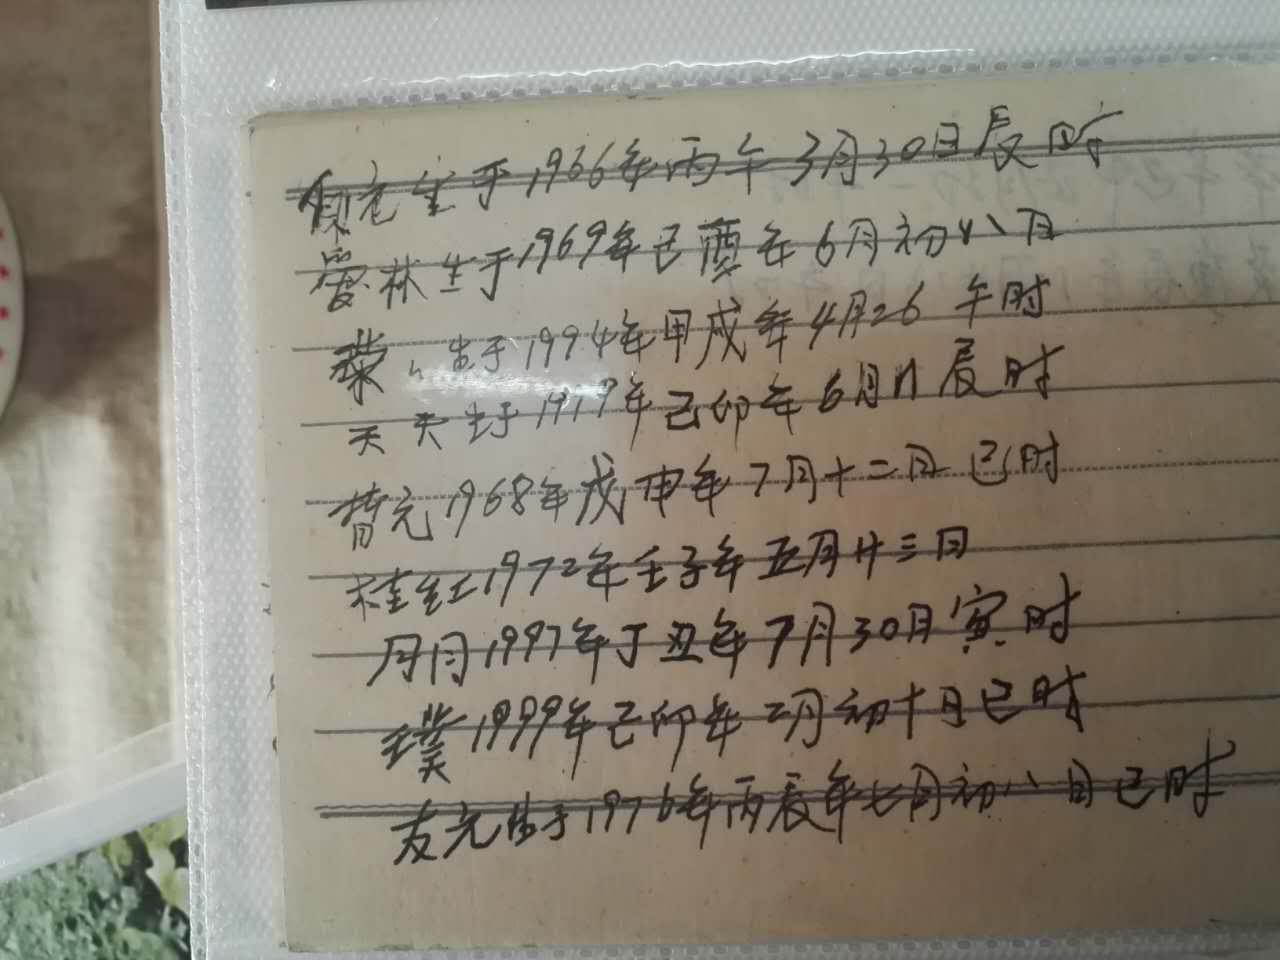 元生于1966年丙午3月30日辰时
雪林生于1969年己酉年6月初八日
生于1994年甲戌年4月26 午时
天天生于1999年己卯年6月11辰时
替元1968年戊申年7月十二日 巳时
桂红1972年壬子年五月廿三日
丹丹1997年丁丑年7月30日寅时
璞1999年己卯年二月初十日巳时
友元生于1976年丙辰年七月初八日巳时